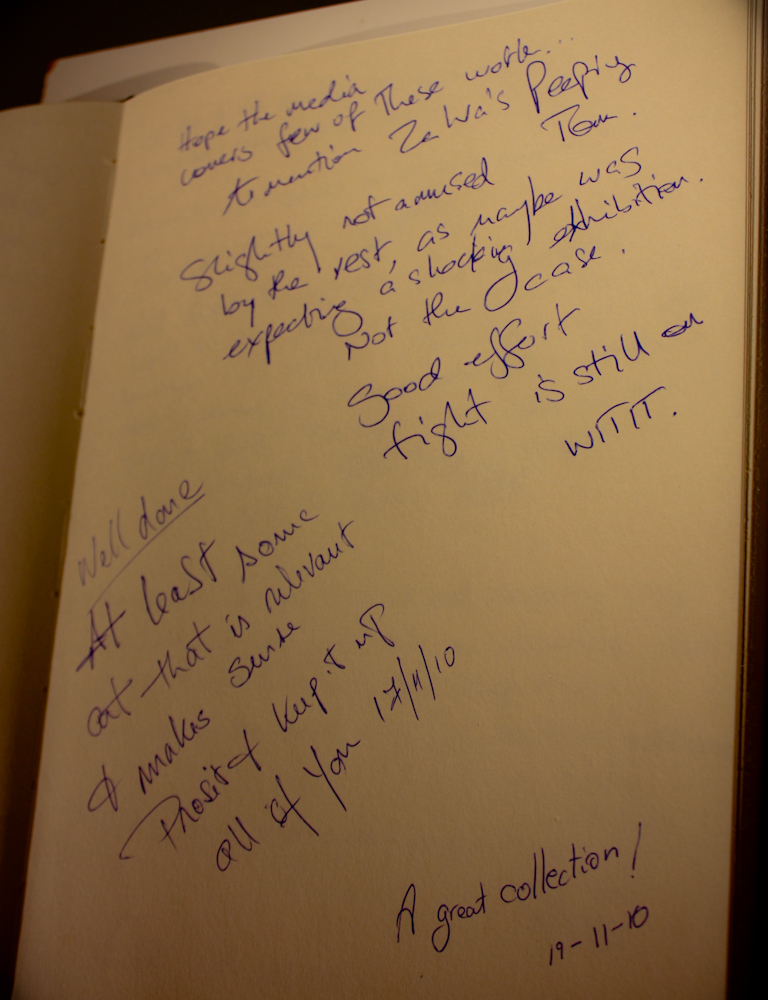 Hope the media
covers few of these works...
to mention Zalva's Peeping
Tom.
Slightly not amused
by the rest, as maybe was
expecting a shocking exhibition.
Not the case.
Good effort
fight is still on
Well done
At least some
art that is relevant
& makes sense
Prosit & keep it up
all of you 17/11/10
A great collection!
19-11-10